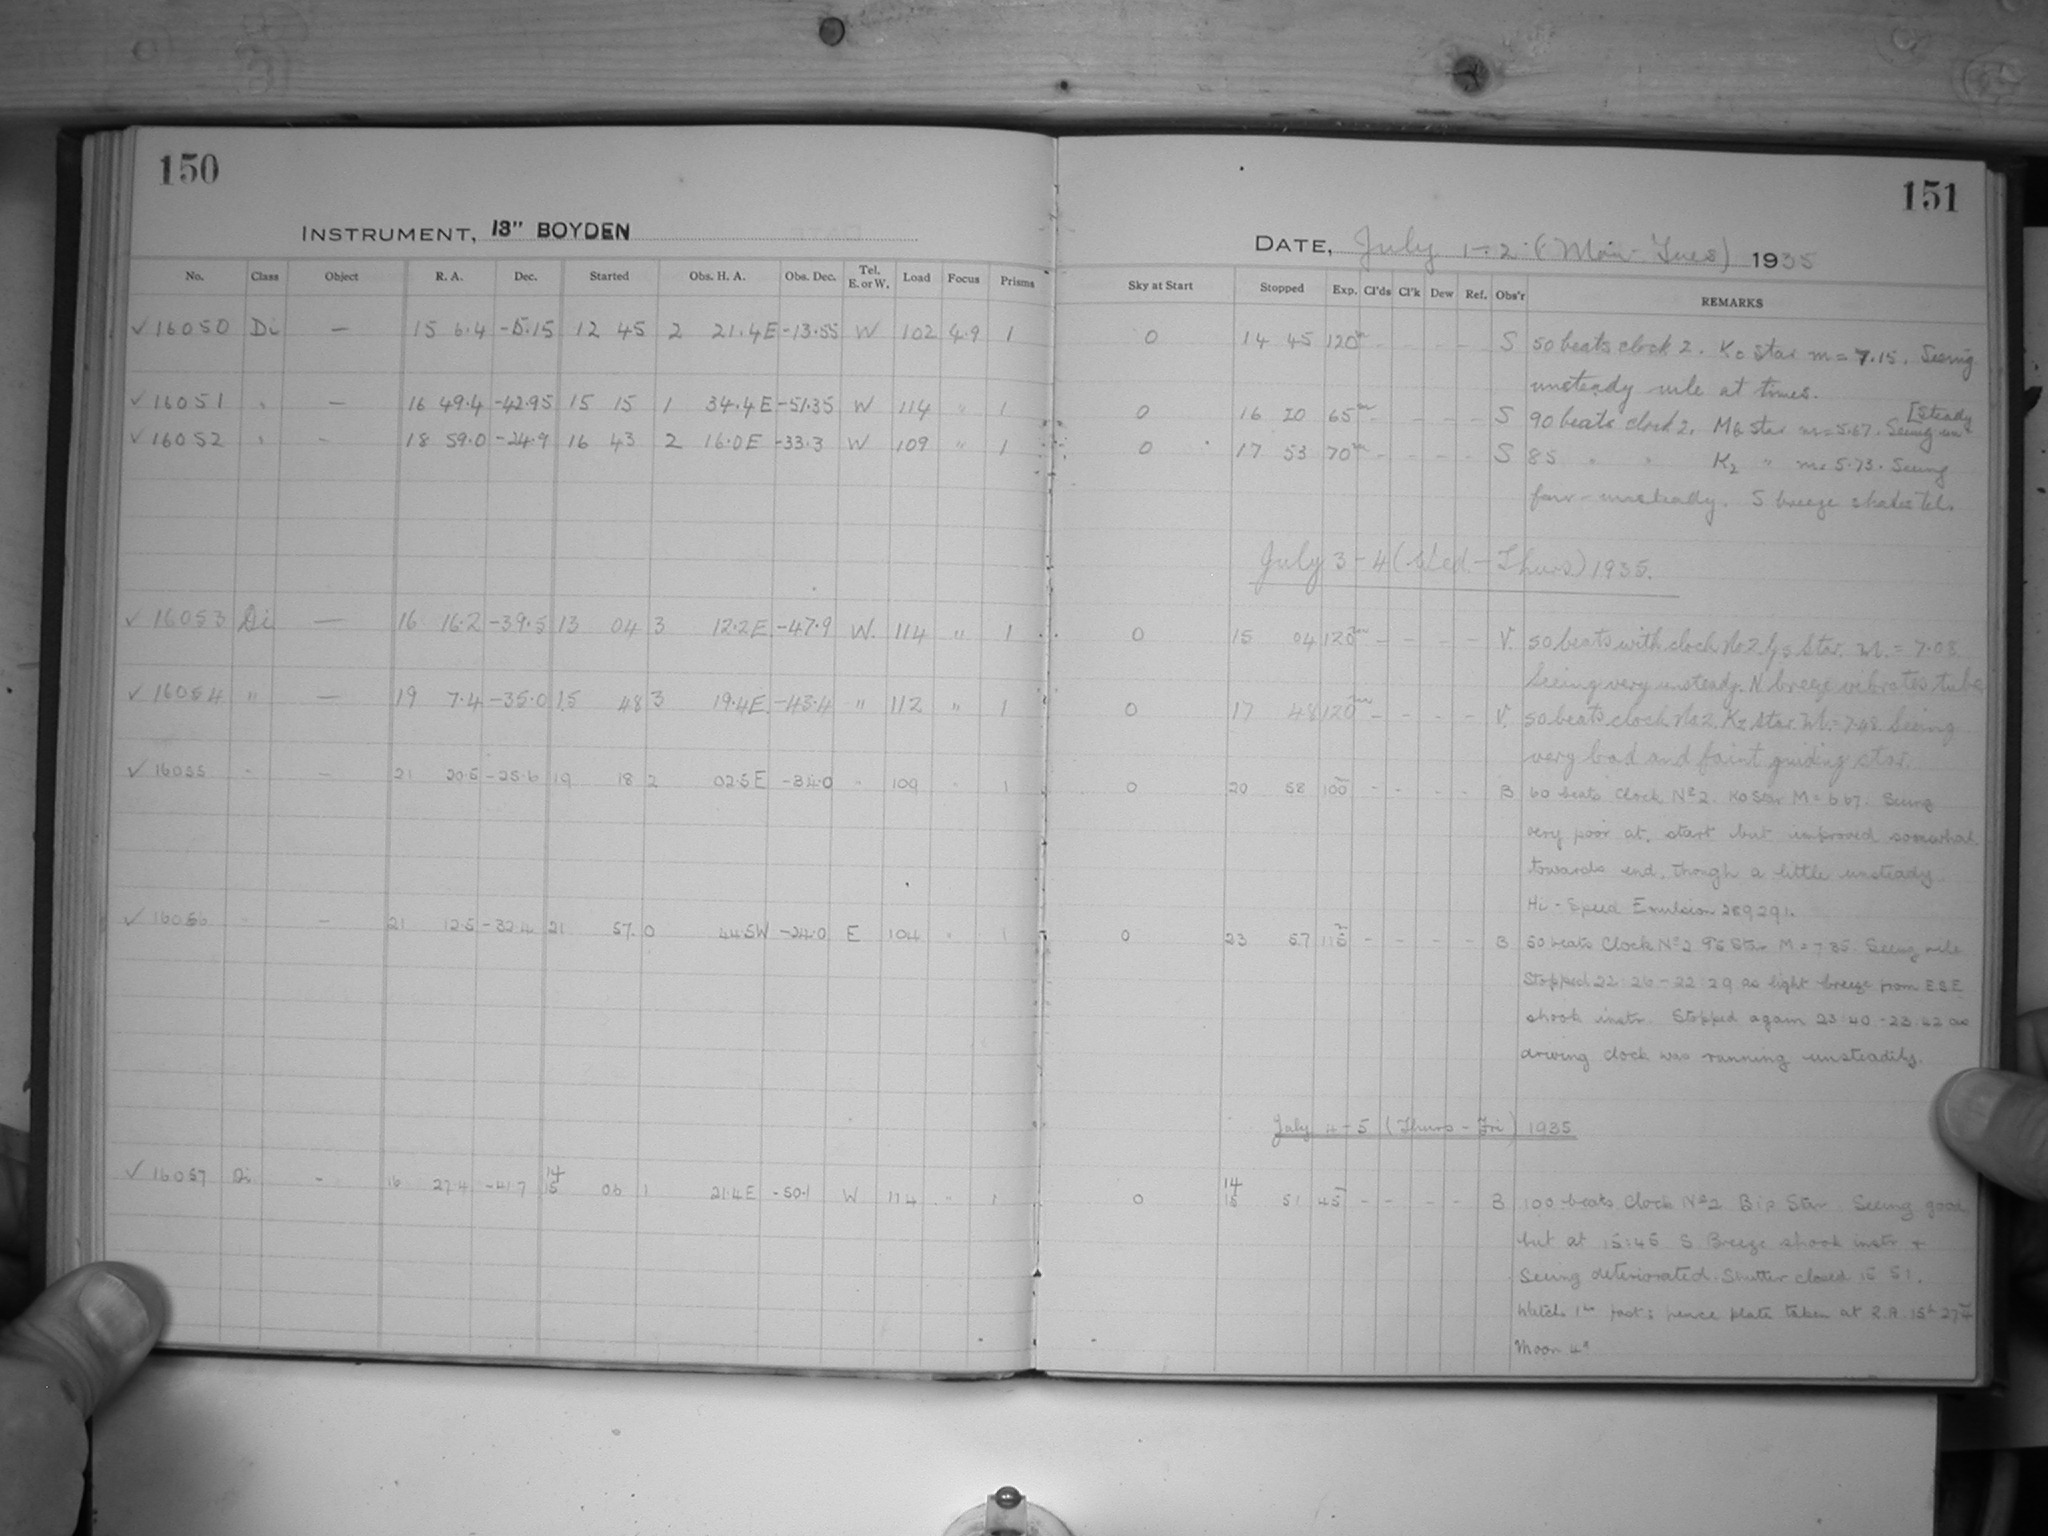 150
INSTRUMENT, 13" BOYDEN
No. Class Object R. A. Dec. Started Obs. H. A. Obs. Dec. Tel. E. or W. Load Focus Prisms
✓ 16050 Di — 15 6.4 -5.15 12 45 2 21.4E -13.55 W 102 4.9 1
✓ 16051 " — 16 49.4 -42.95 15 15 1 34.4E -51.35 W 114 " 1
✓ 16052 " - 18 59.0 -24.9 16 43 2 16.0E -33.3 W 109 " 1
✓ 16053 Di — 16 16.2 -39.5 13 04 3 12.2E -47.9 W. 114 " 1
✓ 16054 " — 19 7.4 -35.0 15 48 3 19.4E -43.4 " 112 " 1
✓ 16055 " - 21 20.5 -25.6 19 18 2 02.5E -34.0 " 109 " 1
✓ 16056 " - 21 12.5 -32.4 21 57 0 44.5W -24.0 E 104 " 1
14
✓ 16057 Di - 16 27.4 -41.7 15 06 1 21.4E -50.1 W 114 " 1
151
DATE, July 1-2 (Mon-Tues) 1935
Sky at Start Stopped Exp. Cl'ds Cl'k Dew Ref. Obs'r REMARKS
0 14 45 120m - - - - S 50 beats clock 2. K0 star m = 7.15. Seeing
unsteady vile at times.
[steady
0 16 20 65m - - - - S 90 beats clock 2. M6 star m = 5.67. Seeing un
0 17 53 70m - - - - S 85 " " K2 " m = 5.73. Seeing
fair - unsteady. S breeze shakes tel.
July 3-4 (Wed.-Thurs) 1935.
0 15 04 120m - - - - V. 50 beats with clock No 2 G5 Star. M. = 7.08
Seeing very unsteady. N breeze vibrates tube
0 17 48 120m - - - - V. 50 beats clock No 2. K2 Star. M. = 7.48. Seeing
very bad and faint guiding star.
0 20 58 100m - - - - B 60 beats Clock No 2. K0 Star M = 6.67. Seeing
very poor at start but improved somewhat
towards end, though a little unsteady.
Hi-Speed Emulsion 289291.
0 23 57 115m - - - - B 50 beats Clock No 2 Star M = 7.85. Seeing vile
Stopped 22:26 - 22:29 as light breeze from ESE
shook instr. Stopped again 23:40 - 23:42 as
driving clock was running unsteadily.
July 4-5 (Thurs-Fri) 1935
14
0 15 51 45m - - - - B 100 beats Clock No 2 Star. Seeing good
but at 15:45 S Breeze shook instr +
Seeing deteriorated. Shutter closed 15 51.
Watch 1h fast; hence plate taken at R.A. 15h 27.4m
Moon 4d